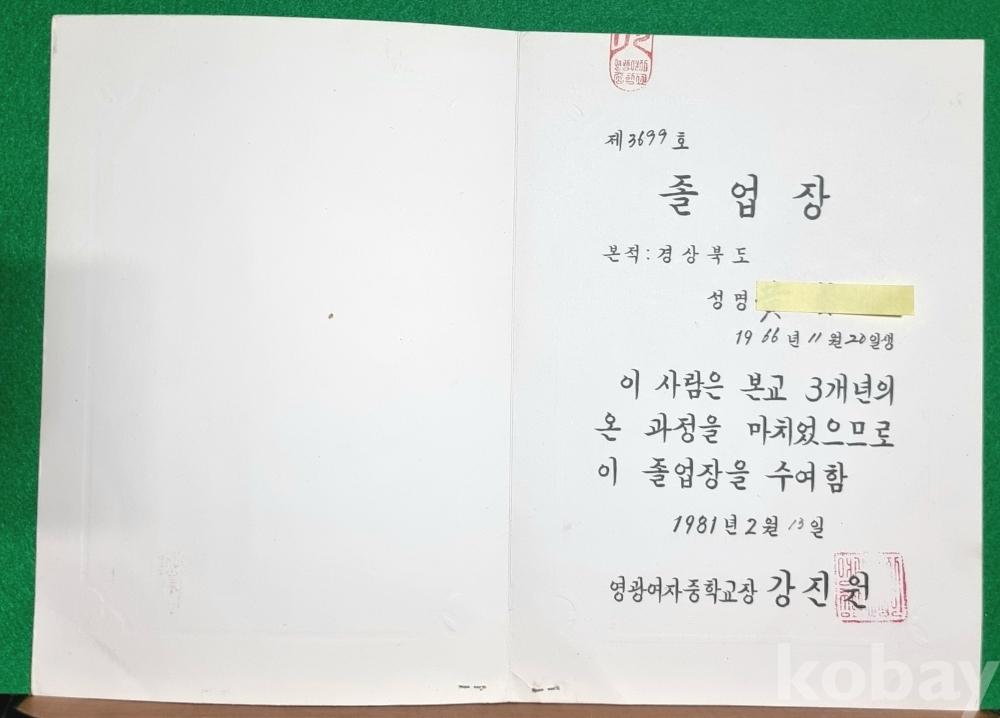 제3699호
졸업장
본적: 경상북도
성명
1966년 11월 20일생
이 사람은 본교 3개년의
온 과정을 마치었으므로
이 졸업장을 수여함
1981년 2월 13일
영광여자중학교장 강진원
kobay